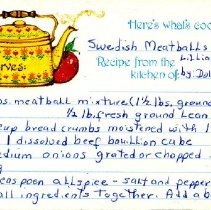 Here's what's coo
Swedish Meatballs
Recipe from the Lillia
kitchen of: by: Do
rves:
bs. meatball mixture (1 1/2 lbs. ground
1/2 lb. fresh ground lean
cup bread crumbs moistened with 1
1 dissolved beef bouillon cube
edium onions grated or chopped
g
easpoon allspice - salt and pepper
all ingredients together. Add a